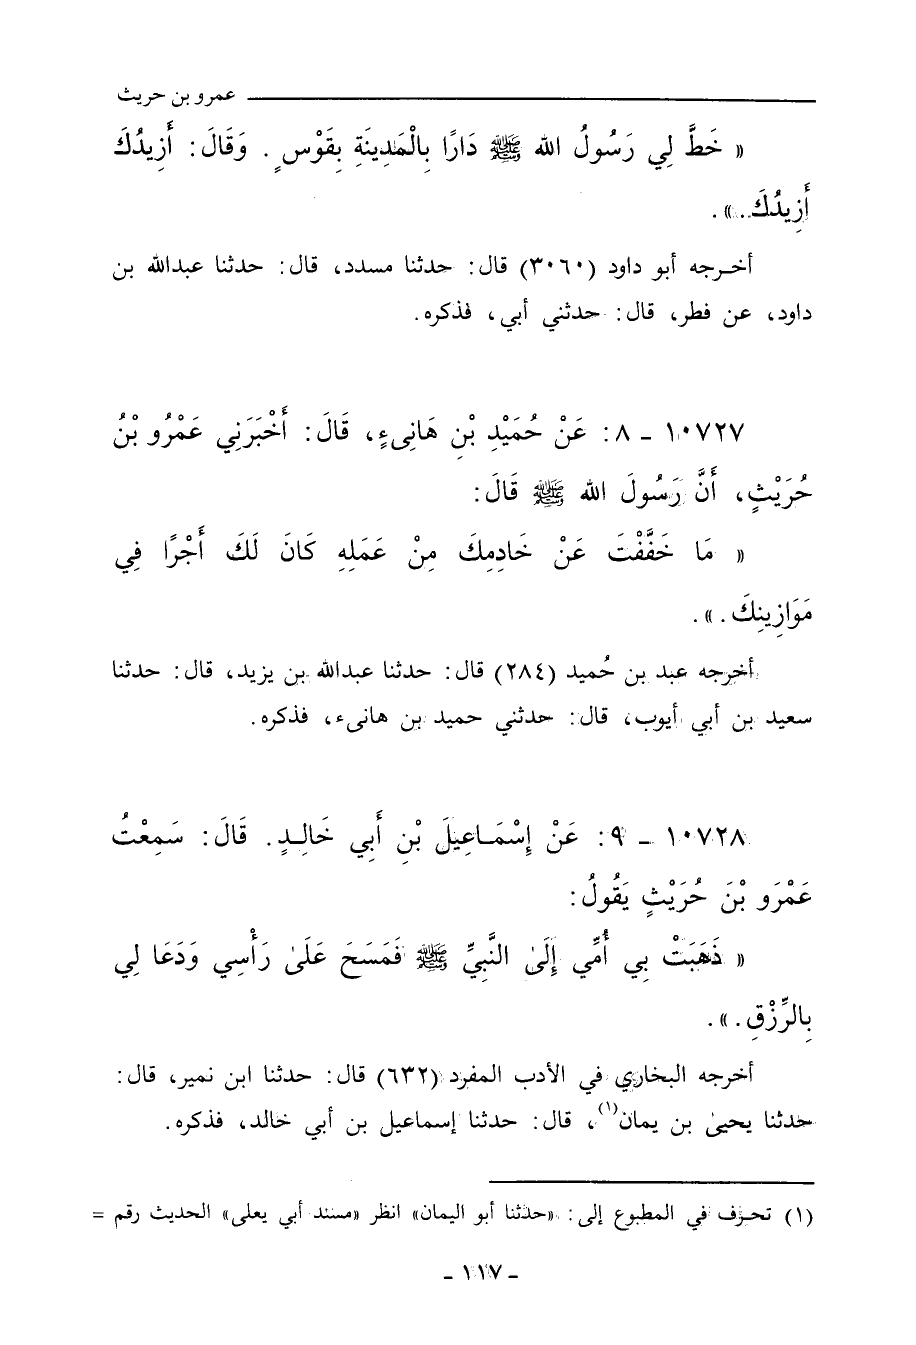 عمرو بن حريث
« خَطَّ لِي رَسُولُ الله ﷺ دَارًا بِالْمَدِينَةِ بِقَوْسٍ . وَقَالَ : أَزِيدُكَ
أَزِيدُكَ..» .
أخـرجه أبو داود (٣٠٦٠) قال : حدثنا مسدد، قال : حدثنا عبدالله بن
داود، عن فطر، قال : حدثني أبي، فذكره .
١٠٧٢٧ - ٨ : عَنْ حُمَيْدِ بْنِ هَانِىءٍ، قَالَ : أَخْبَرَنِي عَمْرُو بْنُ
حُرَيْثٍ، أَنَّ رَسُولَ الله ﷺ قَالَ :
« مَا خَفَّفْتَ عَنْ خَادِمِكَ مِنْ عَمَلِهِ كَانَ لَكَ أَجْرًا فِي
مَوَازِينِكَ . » .
أخرجه عبد بن حُميد (٢٨٤) قال : حدثنا عبدالله بن يزيد، قال : حدثنا
سعيد بن أبي أيوب، قال : حدثني حميد بن هانىء، فذكره .
١٠٧٢٨ - ٩ : عَنْ إِسْمَـاعِيلَ بْنِ أَبِي خَالِـدٍ . قَالَ : سَمِعْتُ
عَمْرَو بْنَ حُرَيْثٍ يَقُولُ :
« ذَهَبَتْ بِي أُمِّي إِلَىٰ النَّبِيِّ ﷺ فَمَسَحَ عَلَىٰ رَأْسِي وَدَعَا لِي
بِالرِّزْقِ . » .
أخرجه البخاري في الأدب المفرد (٦٣٢) قال : حدثنا ابن نمير، قال :
حدثنا يحيىٰ بن يمان(١)، قال : حدثنا إسماعيل بن أبي خالد، فذكره .
(١) تحرف في المطبوع إلى : «حدثنا أبو اليمان» انظر «مسند أبي يعلى» الحديث رقم =
- ١١٧ -